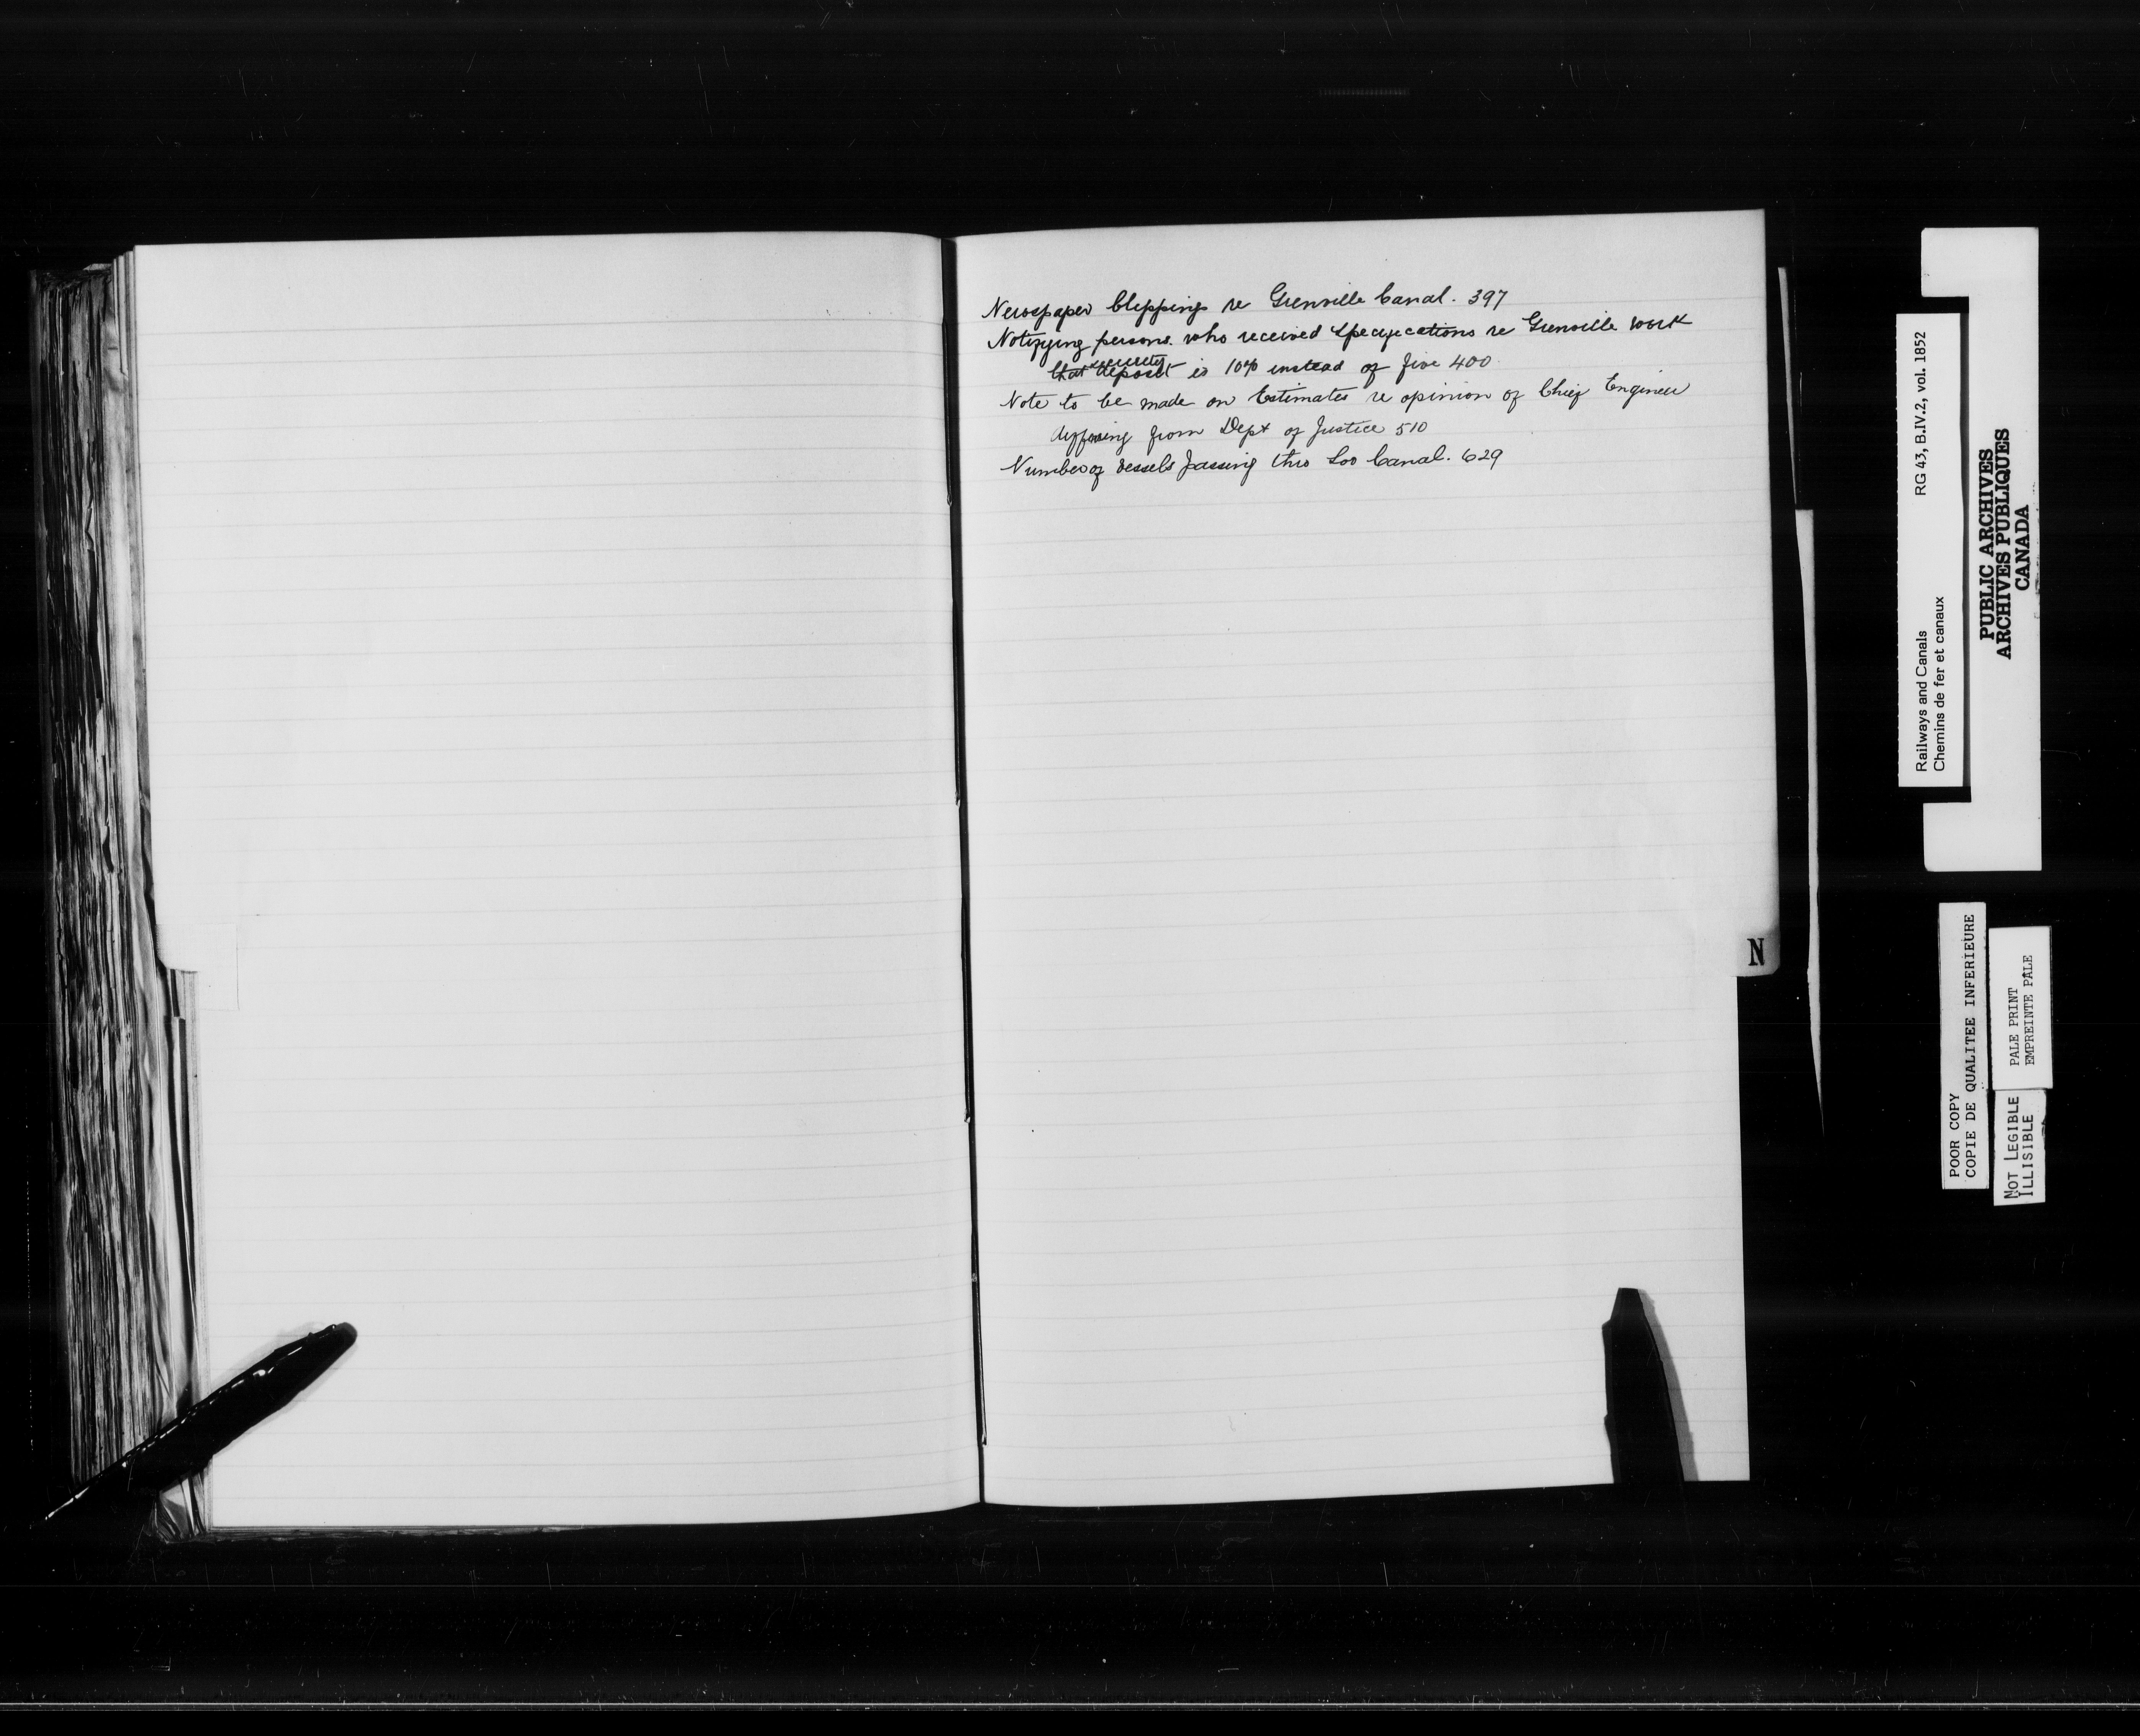 Newspaper Clipping re Grenville Canal. 397
Notifying persons who received specifications re Grenville work
that security deposit is 10% instead of five 400
Note to be made on Estimates re opinion of Chief Engineer
differing from Dept of Justice 510
Number of vessels passing thro Soo Canal. 629
N
Railways and Canals RG 43, B.IV.2, vol. 1852
Chemins de fer et canaux
PUBLIC ARCHIVES
ARCHIVES PUBLIQUES
CANADA
POOR COPY
COPIE DE QUALITEE INFERIEURE
PALE PRINT
EMPREINTE PALE
NOT LEGIBLE
ILLISIBLE